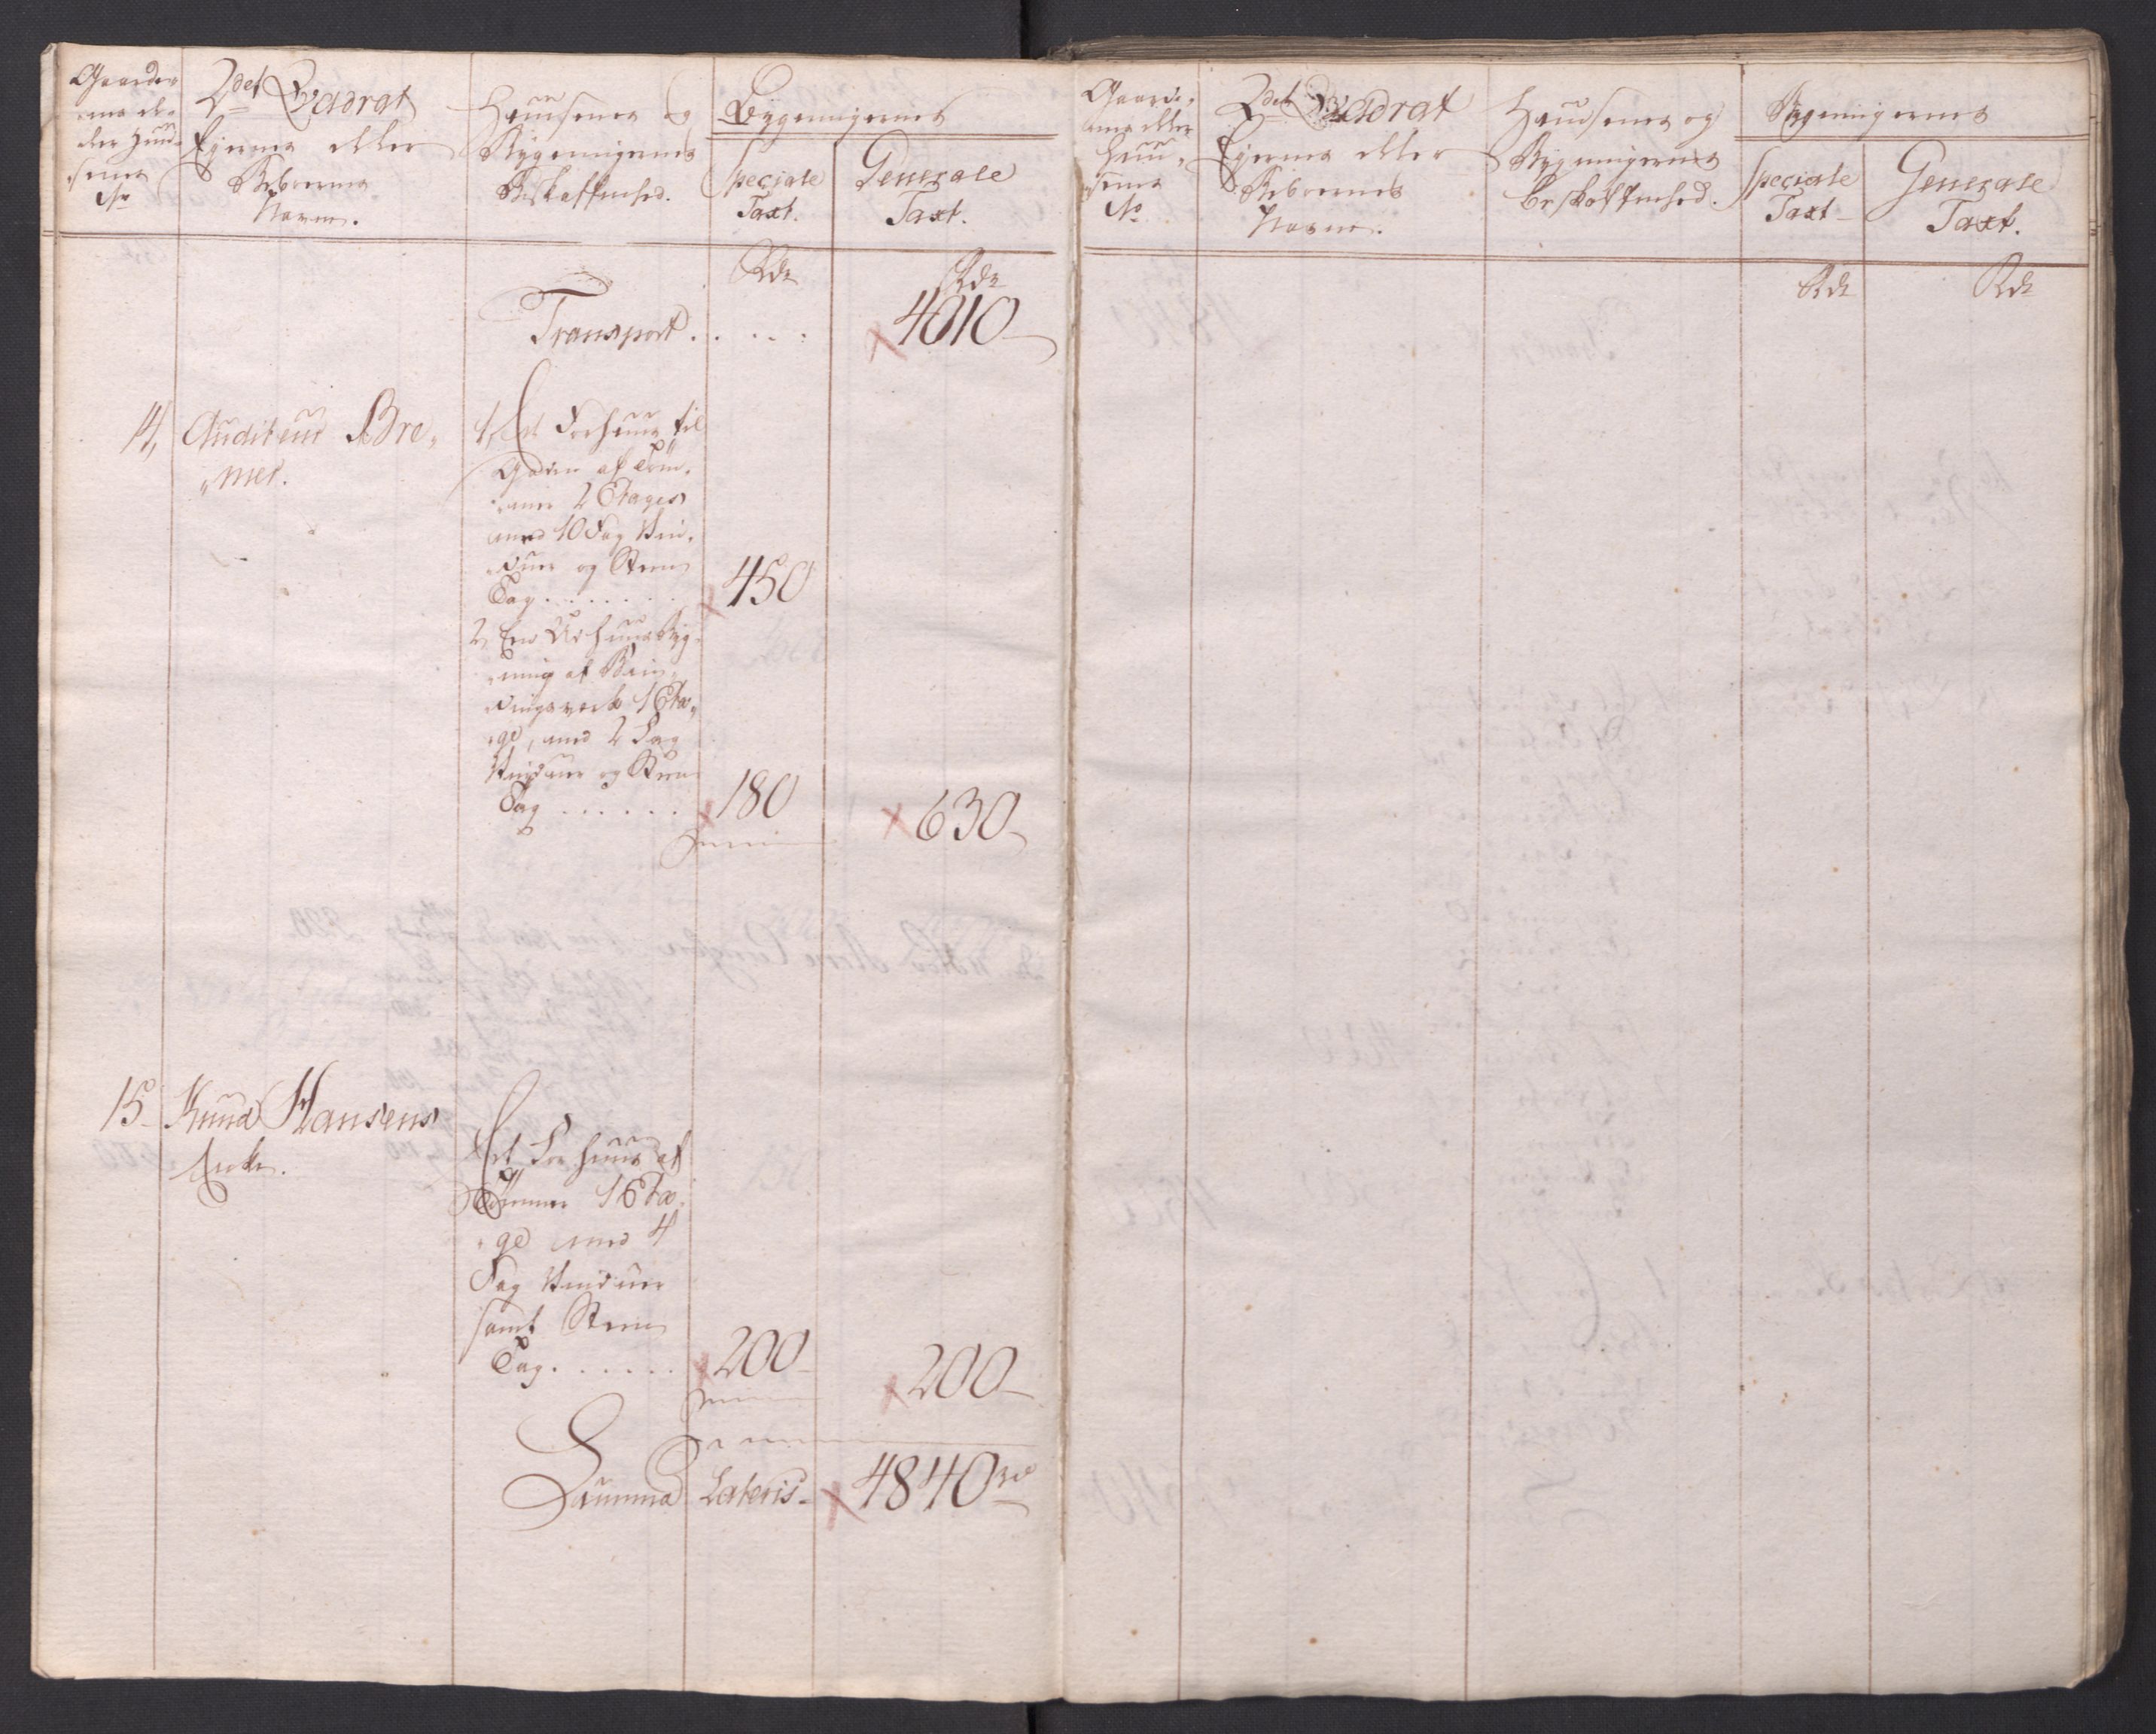 Gaarde-
ne el-
ler Huu-
sene
No
2det Qvadrat
Ejerne eller
Beboernes
Navne.
Huusenes og
Bygningernes
Beskaffenhed.
Bygningernes
Speciale
Taxt.
Generale
Taxt.
Rdr
Rdr
Transport . . . . . 4010
14, Auditeur Bre-
mer.
1, Et Forhuus til
Gaden af Töm-
mer 2 Etager
med 10 Fag Vin-
duer og Steen
Tag . . . . . . 450
2, En Udhuusbyg-
ning af Bin-
dingsverk 1 Eta-
ge, med 2 Fag
Vinduer og Steen
Tag . . . . . . 180 630
15 Knud Hansens
Enke.
Et Forhuus af
Tömmer 1 Eta-
ge med 4
Fag Vinduer
samt Steen
Tag . . . . . . 200 200
Summa Lateris 4840 rd
Gaarde-
ne eller
Huu-
sene
No
2det Qvadrat
Ejerne eller
Beboernes
Navne.
Huusenes og
Bygningernes
Beskaffenhed.
Bygningernes
Speciale
Taxt
Generale
Taxt.
Rdr
Rdr